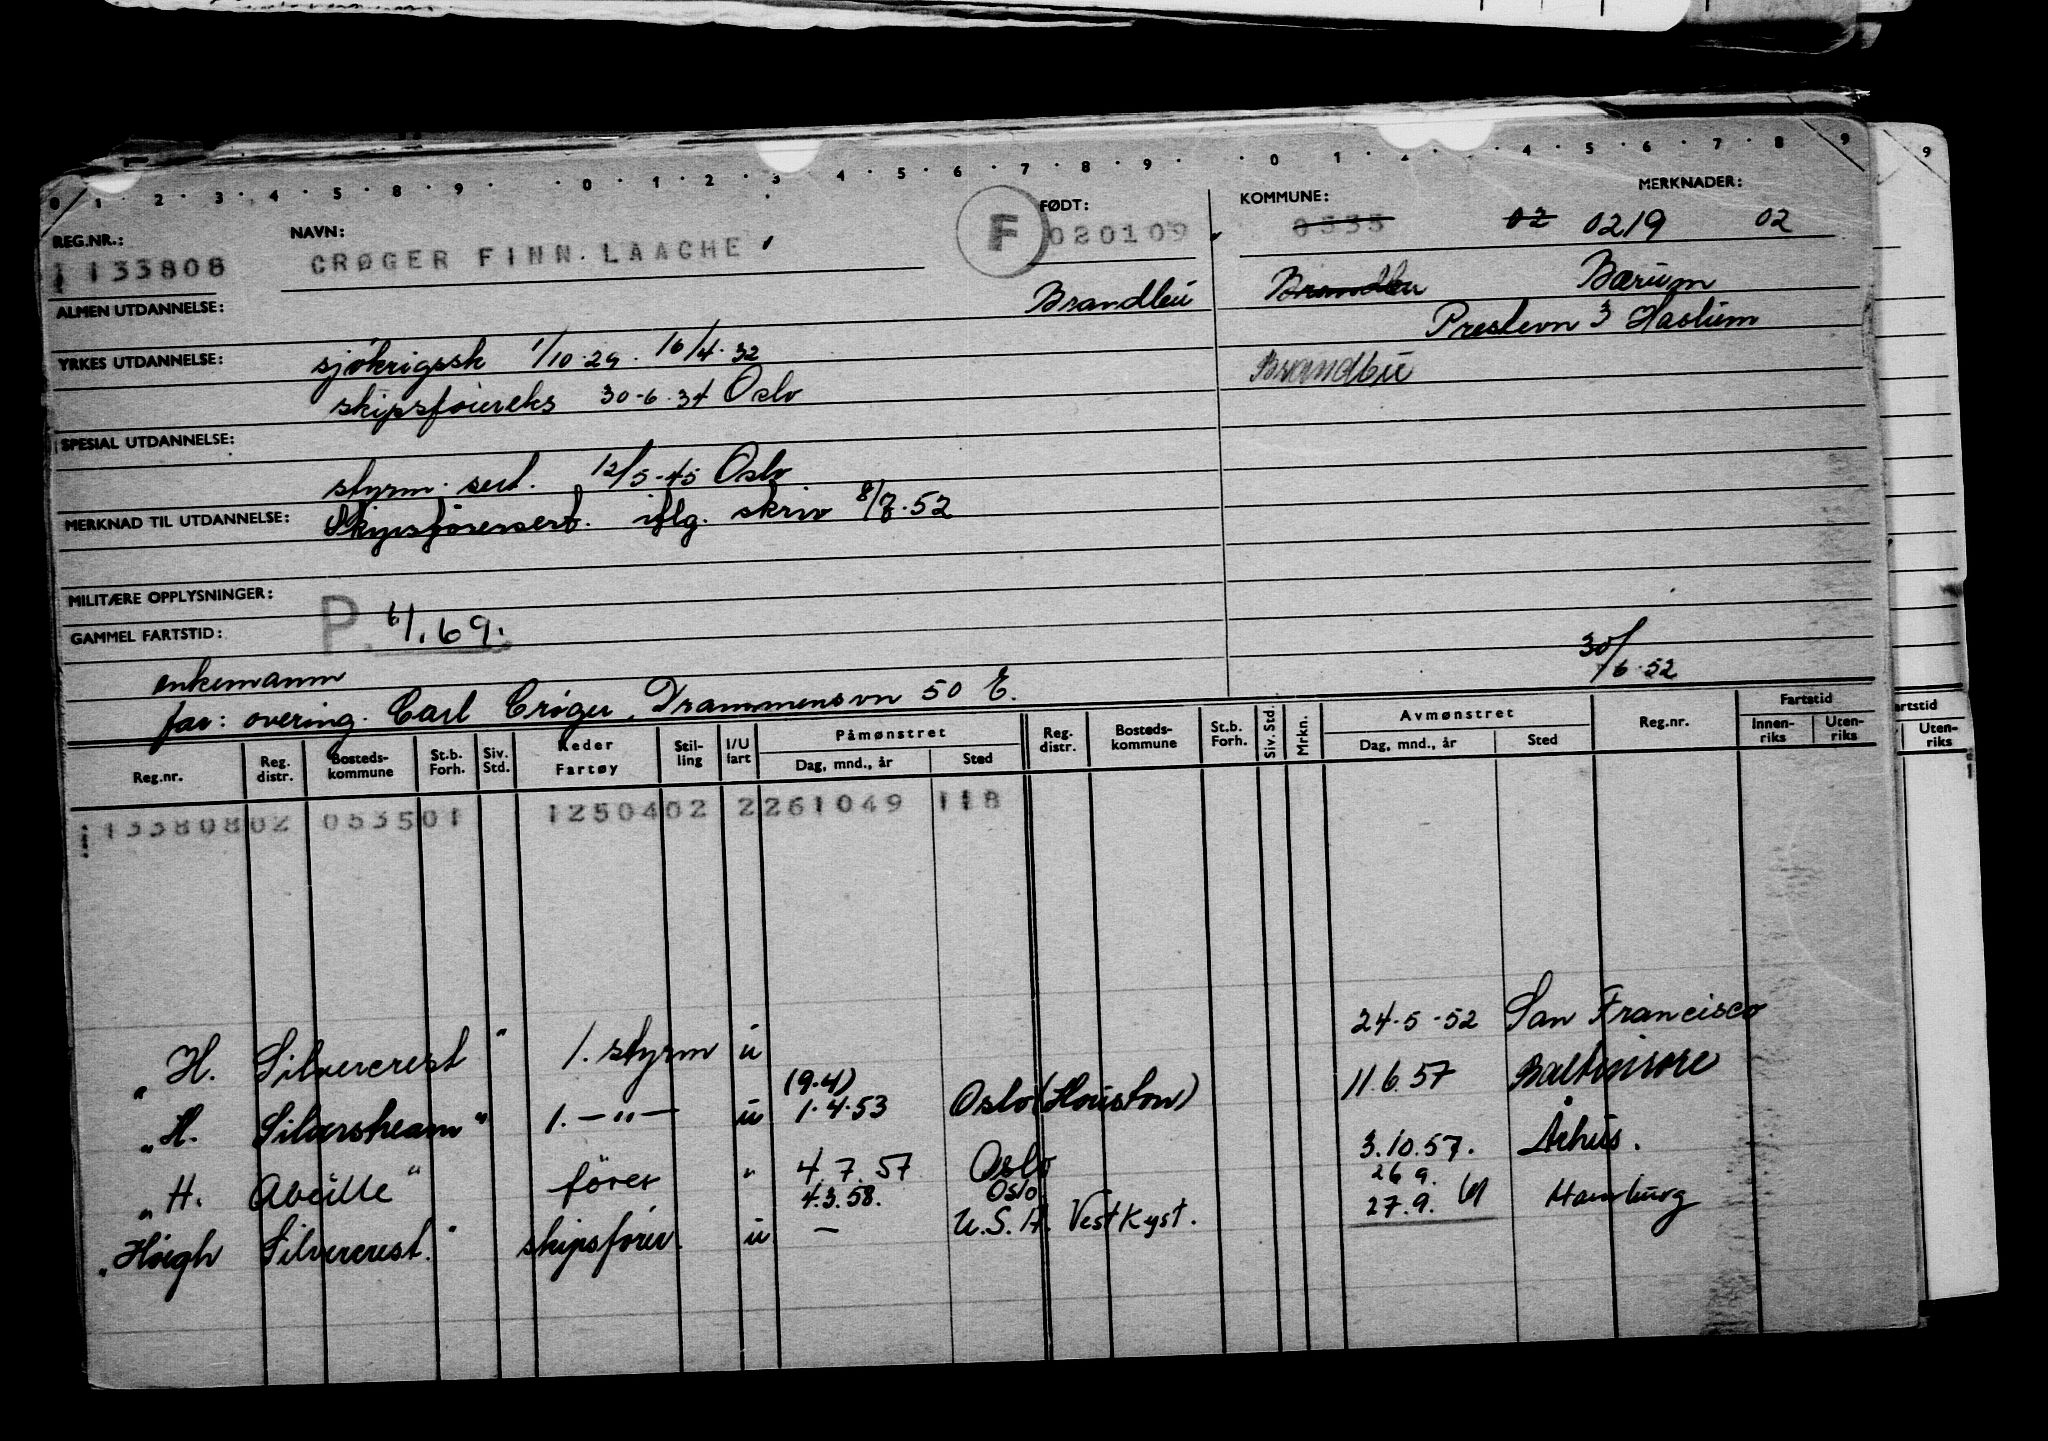 0 1 . 2 . 3 . 4 . 5 . 8 . 9 . . 0 . 1 . 2 . 3 . 4 . 5 . 6 . 7 . 8 . 9 . . 0 . 1 . . 4 . 5 . 6 . 7 . 8 . 9
REG.NR.: NAVN: FØDT: KOMMUNE: MERKNADER:
133808 CRØGER FINN LAACHE F 020109 0535 02 0219 02
ALMEN UTDANNELSE: Brandbu Brandbu Bærum
Prestevn 3 Haslum
YRKES UTDANNELSE: sjøkrigssk 1/10-29 - 16/4-32 Brandbu
skipsføiereks 30-6-34 Oslo
SPESIAL UTDANNELSE:
styrm. sert. 12/5-45 Oslo
MERKNAD TIL UTDANNELSE: Skipsførersert. iflg. skriv 8/7-52
MILITÆRE OPPLYSNINGER:
GAMMEL FARTSTID: P. 6/1.69.
enkemann 30/6-52
far: overing. Carl Crøger, Drammensvn 50 E.
Reg.nr. Reg. distr. Bosteds-kommune St.b. Forh. Siv. Std. Reder Fartøy Stil-ling I/U fart Påmønstret Dag, mnd., år Sted Reg. distr. Bosteds-kommune St.b. Forh. Siv. Std. Mrkn. Avmønstret Dag, mnd., år Sted Reg.nr. Fartstid Innen-riks Uten-riks
133808 02 0535 01 12504 02 2 261049 118
"H. Silvercrest" 1. styrm u 24-5-52 San Francisco
"H. Silverbeam" 1. -"- u (9-4) 1-4-53 Oslo (Houston) 11.6.57 Baltimore
"H. Abeille" fører " 4.7.57 Oslo 3.10.57. Århus.
"Höegh Silvercrest." skipsfører. u 4.3.58. Oslo - U.S.A. Vest Kyst. 26 9. 27.9. 61 Hamburg
9
artstid
Uten-riks